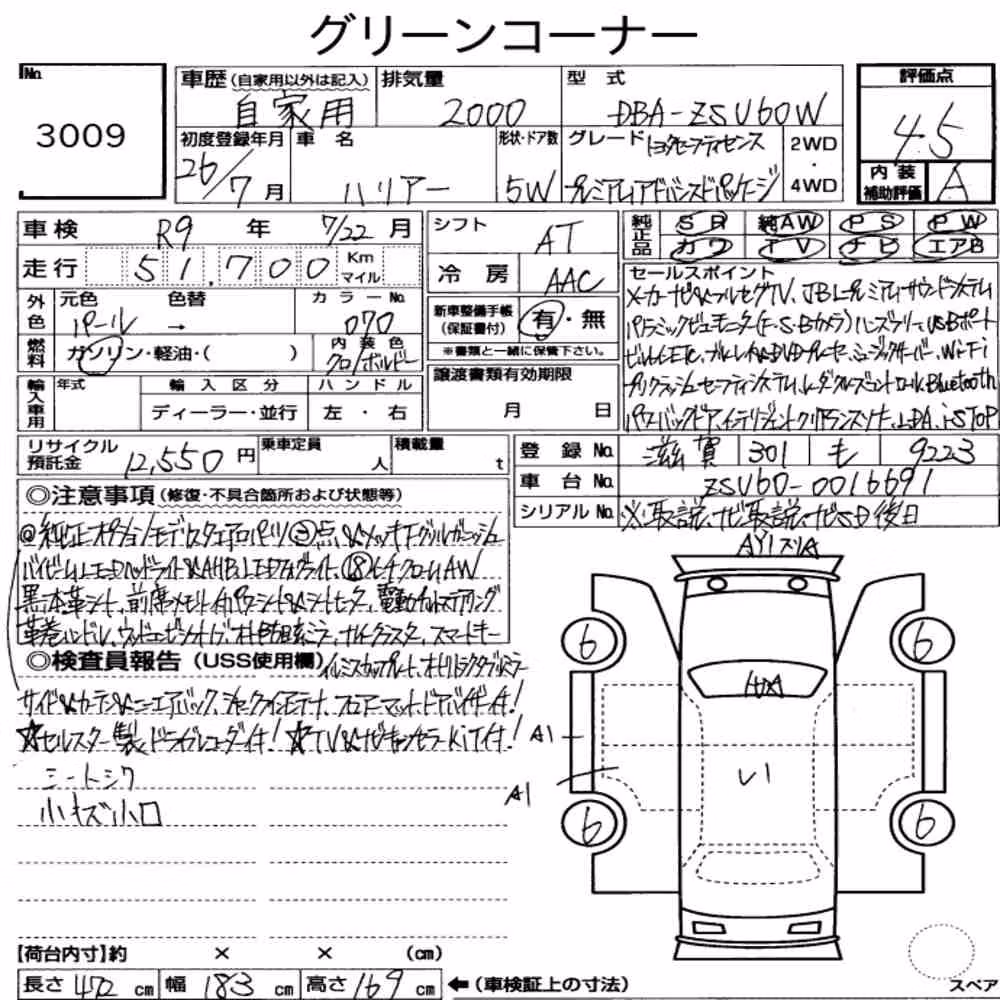 グリーンコーナー
No.
3009
車歴 (自家用以外は記入)
自家用
排気量
2000
型式
DBA-ZSU60W
評価点
4.5
内装補助評価
A
初度登録年月
26/7月
車名
ハリアー
形状・ドア数
5W
グレード トヨタセーフティセンス
プレミアムアドバンスドパッケージ
2WD・4WD
車検 R9年 7/22月
走行 51,700 Km マイル
シフト
AT
冷房
AAC
純正品
SR 純AW PS PW
カワ TV ナビ エアB
外色
元色 色替 カラーNo.
パール → 070
燃料
ガソリン・軽油・( )
内装色
クロ/ボルドー
新車整備手帳
(保証書付)
有・無
※書類と一緒に保管下さい。
セールスポイント
メーカーナビ&フルセグTV、JBLプレミアムサウンドシステム
パノラミックビューモニター(F・S・Bカメラ)ハンズフリー&USBポート
ビルトインETC、ブルーレイ&DVDプレーヤー、ミュージックサーバー、Wi-Fi
プリクラッシュセーフティシステム、レーダークルーズコントロール、Bluetooth
パワーバックドア、インテリジェントクリアランスソナー、LDA、i-STOP
輸入車用
年式
輸入区分
ディーラー・並行
ハンドル
左・右
譲渡書類有効期限
月 日
リサイクル預託金
12,550円
乗車定員
人
積載量
t
登録No. 滋賀 301 も 9223
車台No. ZSU60-0016691
シリアルNo. ※取説、ナビ取説、ナビSD後日
◎注意事項 (修復・不具合箇所および状態等)
◎純正オプションモデリスタエアロパーツ③点、&メッキ下グリルガーニッシュ
バイビームLEDヘッドライト&AHB、LEDフォグライト、⑱ハイパークロームAW
黒本革シート、前席メモリー付パワーシート&シートヒーター、電動チルトステアリング
革巻ハンドル、ウッドコンビネーション、オート防眩ミラー、ナノイー、クリアランスソナー、スマートキー
◎検査員報告 (USS使用欄)
イルミスカッフプレート、オートリトラクタブルミラー
サイド&カーテン&ニーエアバッグ、シャークフィンアンテナ、フロアーマット、ドアバイザー付!
☆セルスター製ドライブレコーダー付! ☆TV&ナビキャンセラーKiT付!
シートシワ
小キズ小凹
AYI スリA
6
6
A1
A1
6
6
【荷台内寸】約 × × (cm)
長さ 472 cm 幅 183 cm 高さ 169 cm ←(車検証上の寸法)
スペア